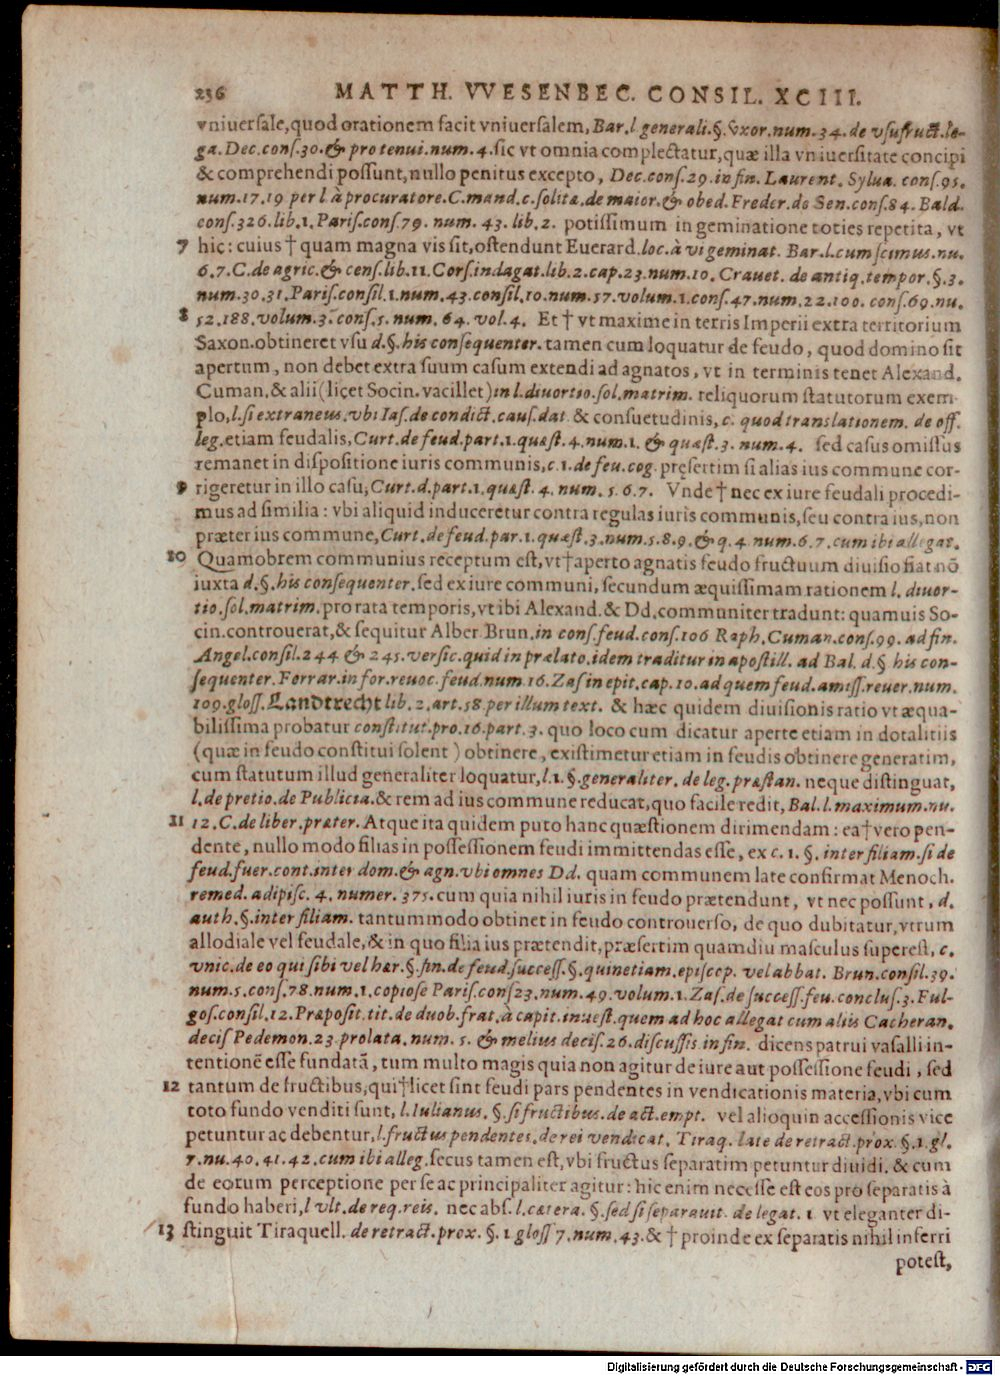 236 MATTH. VVESENBEC. CONSIL. XCIII.
vniuersale,quod orationem facit vniuersalem, Bar. l generali.§.vxor.num.34.de vsufruct.le-
ga.Dec.cons.30.& pro tenui.num.4.sic vt omnia complectatur,quæ illa vniuersitate concipi
& comprehendi possunt,nullo penitus excepto, Dec.cons.29.in fin. Laurent. Sylua. cons.95.
num.17.19 per l à procuratore.C.mand.c.solita.de maior.& obed.Freder.de Sen.cons.84. Bald.
cons.326.lib.1.Paris.cons.79. num. 43. lib.2. potissimum in geminatione toties repetita, vt
7 hic: cuius † quam magna vis sit,ostendunt Euerard.loc.à vi geminat. Bar.l.cum scimus.nu.
6.7.C.de agric.& cens.lib.11.Cors.indagat.lib.2.cap.23.num.10. Crauet. de antiq.tempor.§.3.
num.30.31.Paris.consil.1.num.43.consil.10.num.57.volum.1.cons.47.num.22.100. cons.69.nu.
8 52.188.volum.3.cons.5. num. 64. vol.4. Et † vt maxime in terris Imperii extra territorium
Saxon.obtineret vsu d.§.his consequenter. tamen cum loquatur de feudo, quod domino sit
apertum, non debet extra suum casum extendi ad agnatos, vt in terminis tenet Alexand.
Cuman.& alii (licet Socin. vacillet) in l.diuortio.sol.matrim. reliquorum statutorum exem
plo,l.si extraneus.vbi Ias.de condict.caus.dat. & consuetudinis, c. quod translationem. de off.
leg.etiam feudalis,Curt.de feud.part.1.quæst.4.num.1. & quæst.3. num.4. sed casus omissus
remanet in dispositione iuris communis,c.1.de feu.cog. pręsertim si alias ius commune cor-
9 rigeretur in illo casu,Curt.d.part.1.quæst. 4. num. 5. 6.7. Vnde † nec ex iure feudali procedi-
mus ad similia : vbi aliquid induceretur contra regulas iuris communis,seu contra ius,non
præter ius commune,Curt.de feud.par.1.quæst.3.num.5.8.9.& q.4.num.6.7.cum ibi allegat.
10 Quamobrem communius receptum est,vt†aperto agnatis feudo fructuum diuisio fiat nō
iuxta d.§.his consequenter.sed ex iure communi,secundum æquissimam rationem l. diuor-
tio.sol.matrim.pro rata temporis,vt ibi Alexand.& Dd.communiter tradunt: quamuis So-
cin.controuerat,& sequitur Alber Brun.in cons.feud.cons.106 Raph.Cuman.cons.99. ad fin.
Angel.consil.244 & 245.versic.quid in prælato.idem traditur in apostill. ad Bal. d.§ his con-
sequenter.Ferrar.in for.reuoc.feud.num.16.Zas in epit.cap.10.ad quem feud.amiss.reuer.num.
109.gloss.Landtrecht lib.2.art.58.per illum text. & hæc quidem diuisionis ratio vt æqua-
bilissima probatur constitut.pro.16.part.3. quo loco cum dicatur aperte etiam in dotalitiis
(quæ in feudo constitui solent ) obtinere, existimetur etiam in feudis obtinere generatim,
cum statutum illud generaliter loquatur,l.1.§.generaliter.de leg.præstan. neque distinguat,
l.de pretio.de Publicia.& rem ad ius commune reducat,quo facile redit,Bal.l.maximum.nu.
11 12.C.de liber.præter.Atque ita quidem puto hanc quæstionem dirimendam : ea†vero pen-
dente, nullo modo filias in possessionem feudi immittendas esse, ex c. 1. §. inter filiam.si de
feud.fuer.cont.inter dom.& agn.vbi omnes Dd. quam communem late confirmat Menoch.
remed. adipisc. 4. numer. 375.cum quia nihil iuris in feudo prætendunt, vt nec possunt, d.
auth.§.inter filiam. tantummodo obtinet in feudo controuerso, de quo dubitatur,vtrum
allodiale vel feudale,& in quo filia ius prætendit,præsertim quamdiu masculus superest, c.
vnic.de eo qui sibi vel hær.§.fin.de feud.success.§.quinetiam.episcop. vel abbat. Brun.consil.39.
num.5.cons.78.num.1.copiose Paris.cons23.num.49.volum.1.Zas.de success.feu.conclus.3.Ful-
gos.consil.12.Præposit.tit.de duob.frat.à capit.inuest.quem ad hoc allegat cum aliis Cacheran.
decis Pedemon.23.prolata.num. 5. & melius decis.26.discussis.in fin. dicens patrui vasalli in-
tentionē esse fundatā, tum multo magis quia non agitur de iure aut possessione feudi, sed
12 tantum de fructibus,qui†licet sint feudi pars pendentes in vendicationis materia,vbi cum
toto fundo venditi sunt, l.Iulianus. §.si fructibus.de act.empt. vel alioquin accessionis vice
petuntur ac debentur,l.fructus pendentes.de rei vendicat. Tiraq. late de retract.prox.§.1.gl.
7.nu.40.41.42.cum ibi alleg.secus tamen est,vbi fructus separatim petuntur diuidi, & cum
de eorum perceptione per se ac principaliter agitur: hic enim necesse est eos pro separatis à
fundo haberi,l vlt.de req.reis. nec abs. l.cætera. §.sed si separauit. de legat. 1 vt eleganter di-
13 stinguit Tiraquell. de retract.prox. §.1 gloss 7.num.43.& † proinde ex separatis nihil inferri
potest,
Digitalisierung gefördert durch die Deutsche Forschungsgemeinschaft - DFG